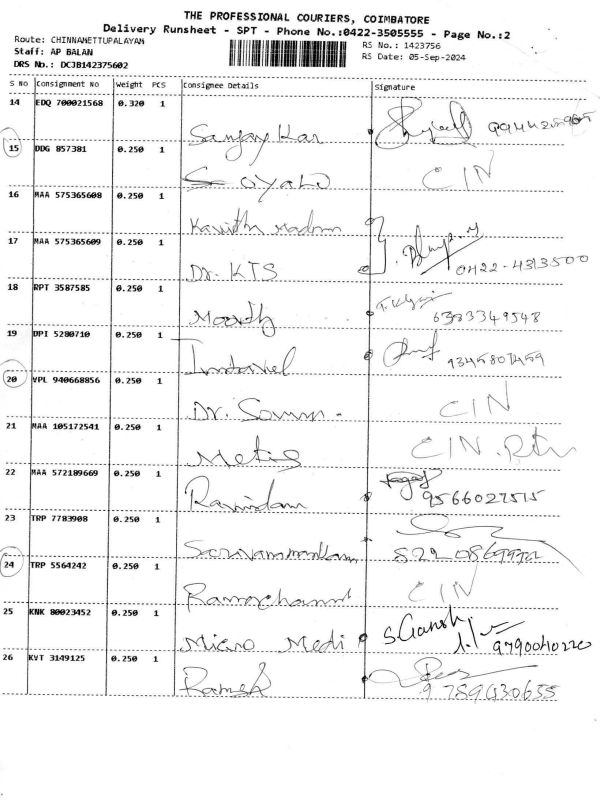 THE PROFESSIONAL COURIERS, COIMBATORE
Delivery Runsheet - SPT - Phone No.:0422-3505555 - Page No.:2
Route: CHINNAMETTUPALAYAM
RS No.: 1423756
Staff: AP BALAN
RS Date: 05-Sep-2024
DRS No.: DCJB142375602
S NO Consignment No Weight PCS Consignee Details Signature
14 EDQ 700021568 0.320 1
Sanjay Kar
15 DDG 857381 0.250 1 CIN
16 MAA 575365608 0.250 1
Kavitha Madam
17 MAA 575365609 0.250 1
Dr. KTS 0422-4313500
18 RPT 3587585 0.250 1
Moorthy 6383349548
19 DPI 5280710 0.250 1
9345807459
20 VPL 940668856 0.250 1
Dr. CIN
21 MAA 105172541 0.250 1
CIN.
22 MAA 572189669 0.250 1
9566027515
23 TRP 7783908 0.250 1
24 TRP 5564242 0.250 1 CIN
25 KNK 80023452 0.250 1
Micro Medi S.Ganesh
9790040220
26 KVT 3149125 0.250 1
Ramesh 9789430655